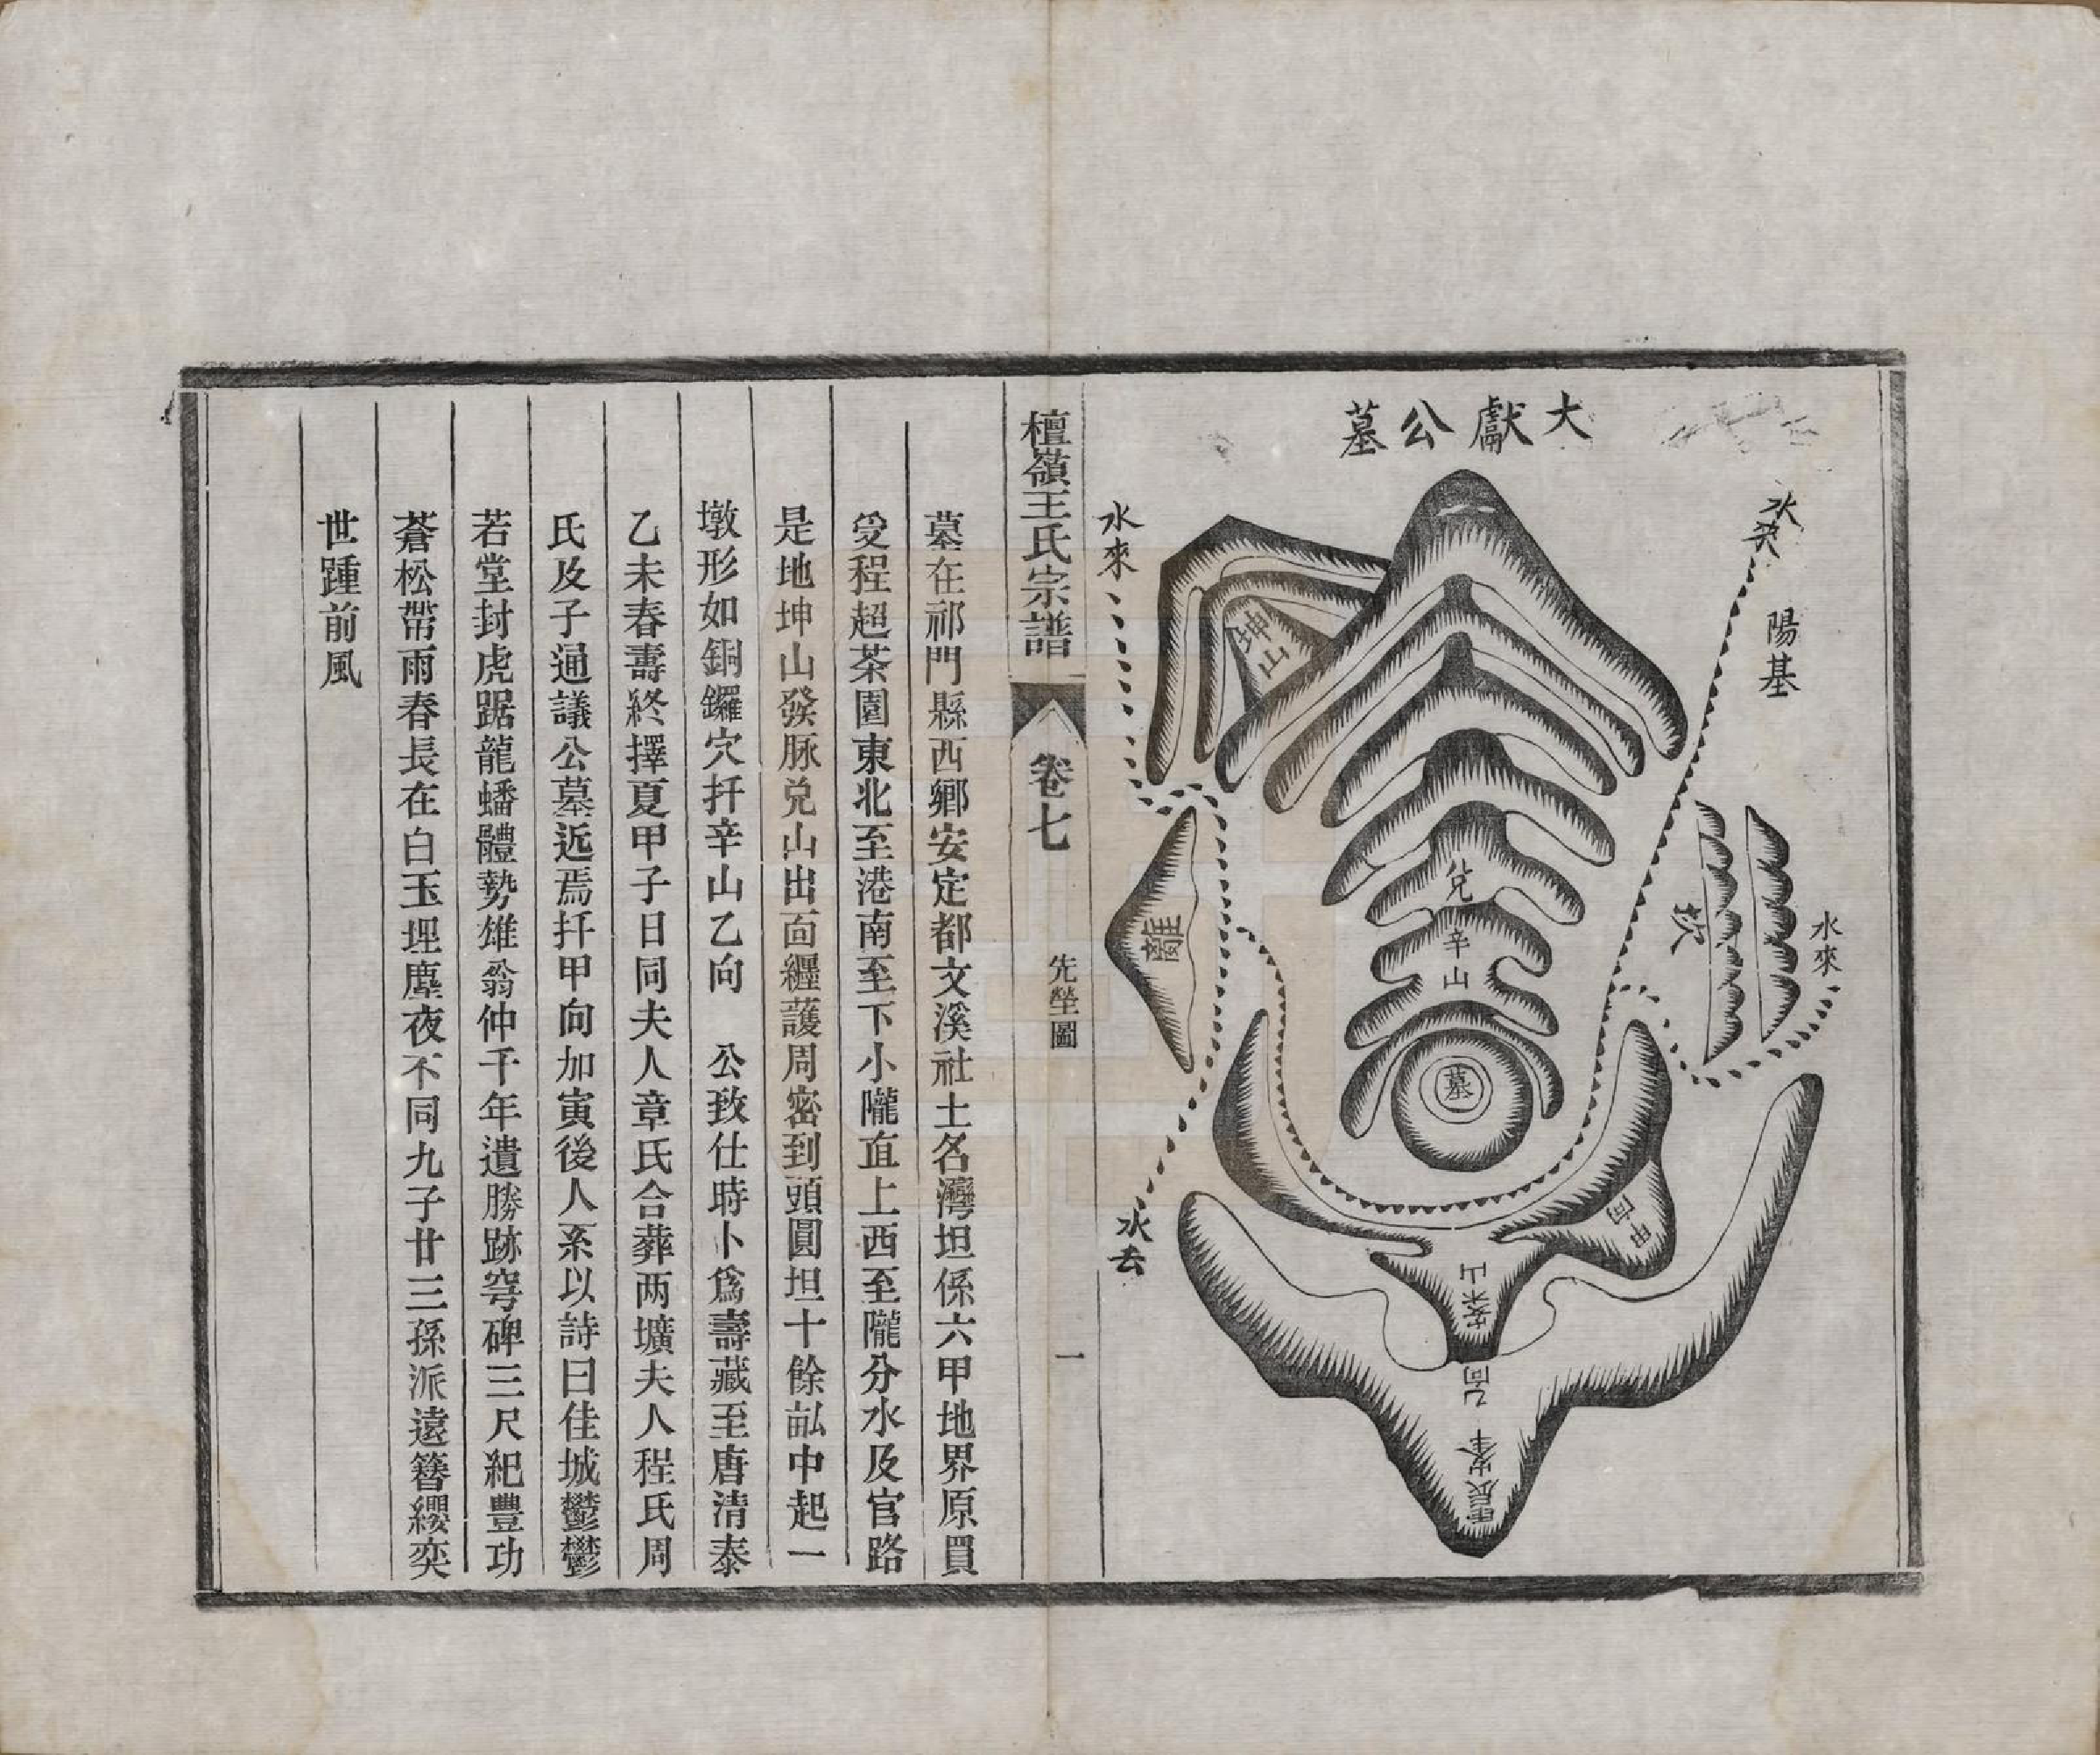 大獻公墓
水來
陽基
水來
坎
坤山
水來
離
兌
辛山
墓
甲向
案山
乙向
震辰峯
水去
檀嶺王氏宗譜
卷七
先塋圖
一
墓在祁門縣西鄉安定都文溪社土名灣坦係六甲地界原買
受程超茶園東北至港南至下小隴直上西至隴分水及官路
是地坤山發脉兌山出面纒護周密到頭圓坦十餘畝中起一
墩形如銅鑼穴扦辛山乙向　公致仕時卜為壽藏至唐清泰
乙未春壽終擇夏甲子日同夫人章氏合葬两壙夫人程氏周
氏及子通議公墓近焉扦甲向加寅後人系以詩曰佳城鬱鬱
若堂封虎踞龍蟠體勢雄翁仲千年遺勝跡穹碑三尺紀豐功
蒼松帶雨春長在白玉埋塵夜不同九子廿三孫派遠簪纓奕
世踵前風